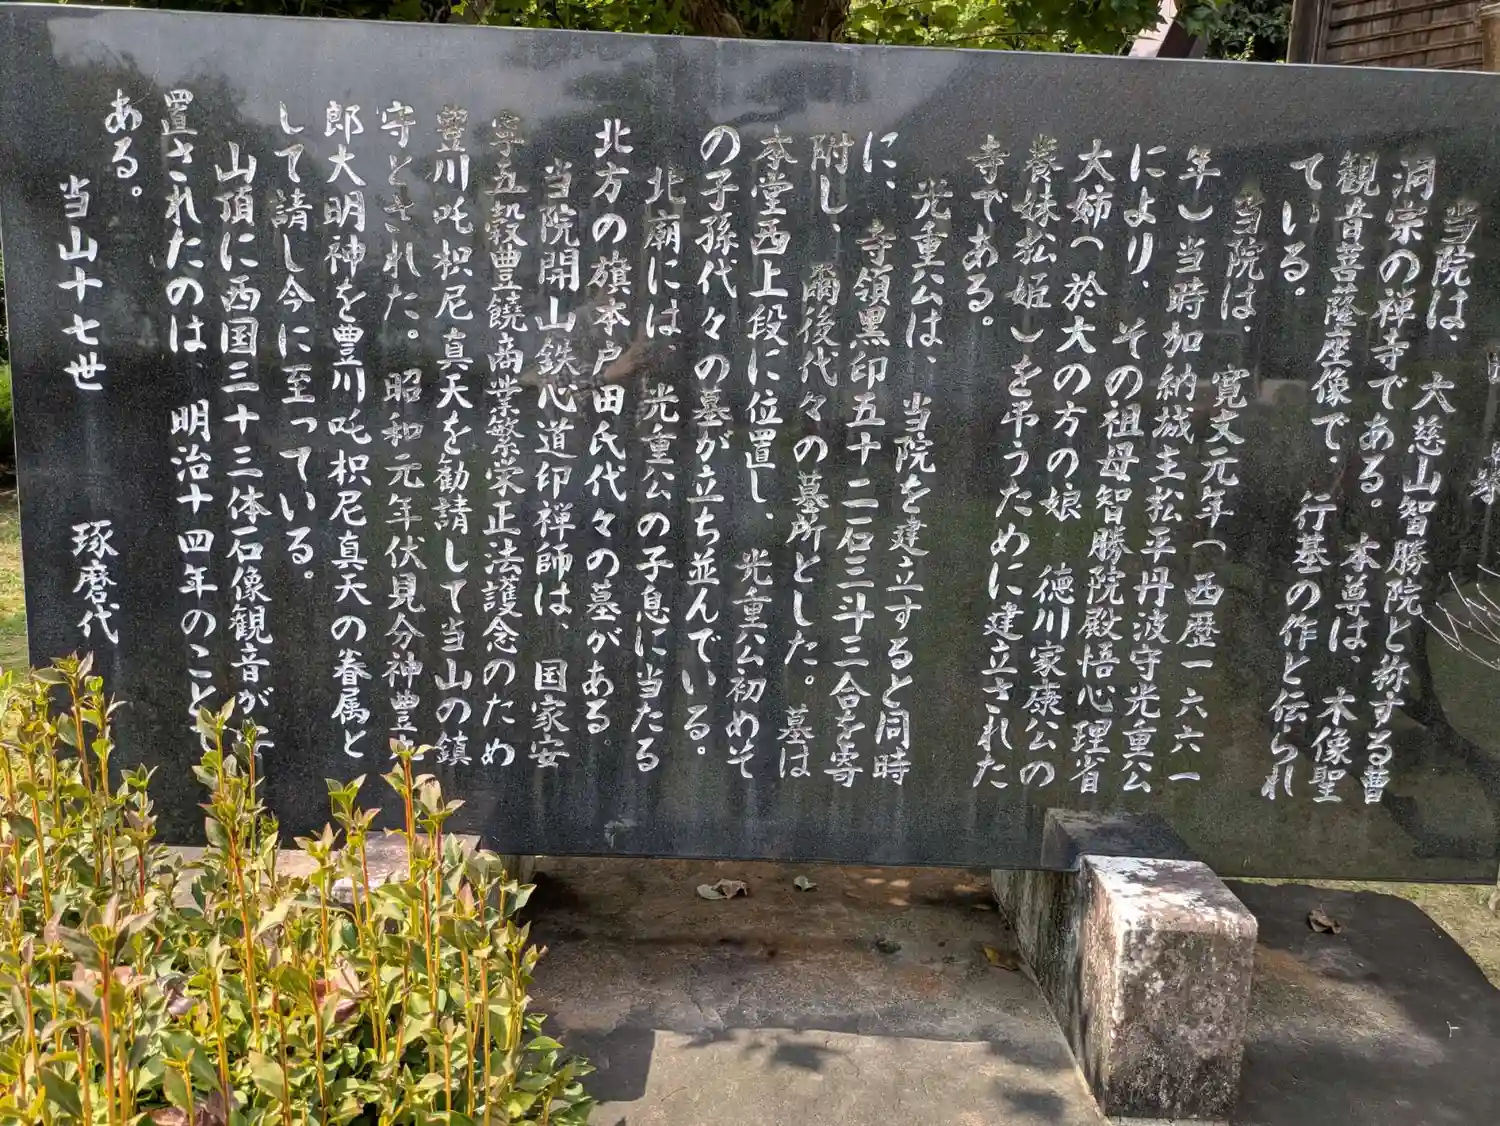 当院は、大慈山智勝院と称する曹
洞宗の禅寺である。本尊は、木像聖
観音菩薩座像で、行基の作と伝られ
ている。
当院は、寛文元年(西歴一六六一
年)当時加納城主松平丹波守光重公
により、その祖母智勝院殿悟心理省
大姉(於大の方の娘 徳川家康公の
養妹松姫)を弔うために建立された
寺である。
光重公は、当院を建立すると同時
に、寺領黒印五十二石三斗三合を寄
附し、爾後代々の墓所とした。墓は
本堂西上段に位置し、光重公初めそ
の子孫代々の墓が立ち並んでいる。
北廟には、光重公の子息に当たる
北方の旗本戸田氏代々の墓がある。
当院開山鉄心道印禅師は、国家安
寧五穀豊饒商業繁栄正法護念のため
豐川吒枳尼真天を勧請して当山の鎮
守とされた。昭和元年伏見分神豊
郎大明神を豊川吒枳尼真天の眷属と
して請し今に至っている。
山頂に西国三十三体石像観音が
置されたのは、明治十四年のことで
ある。
当山十七世 琢磨代